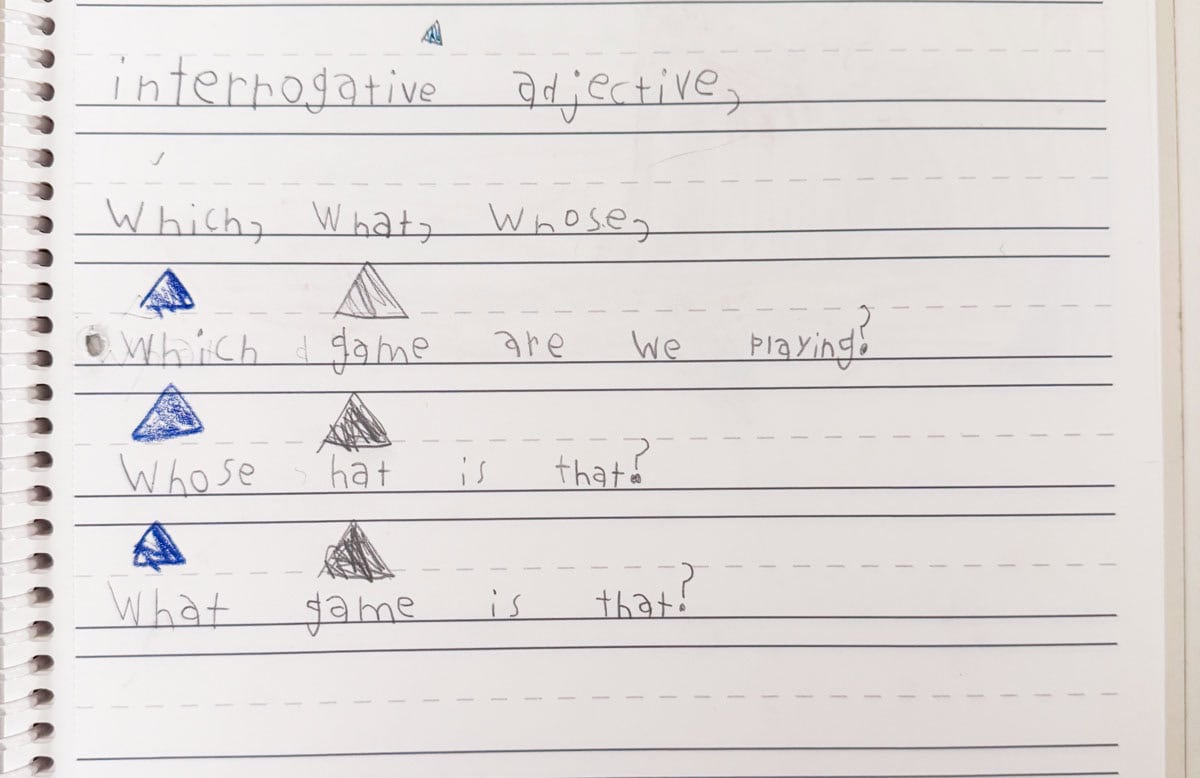 interrogative adjective,
Which, What, Whose,
Which game are we playing?
Whose hat is that?
What game is that?